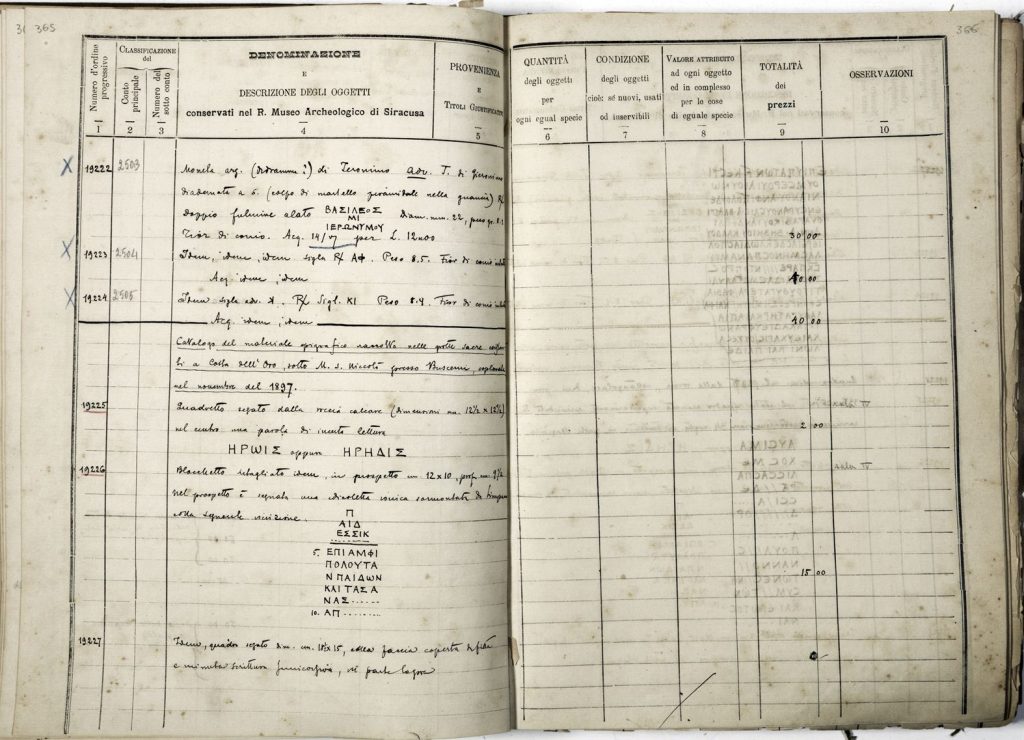 365
Numero d'ordine progressivo
CLASSIFICAZIONE del
Conto principale
Numero del sotto conto
DENOMINAZIONE
E
DESCRIZIONE DEGLI OGGETTI
conservati nel R. Museo Archeologico di Siracusa
PROVENIENZA
E
TITOLI GIUSTIFICATIVI
1 2 3 4 5
X 19222 2503 Moneta arg. (didramma?) di Ieronimo adv. T. di Ieronimo
diademata a s. (colpo di martello piramidale nella guancia) R/
doppio fulmine alato ΒΑΣΙΛΕΟΣ diam. mm. 22, peso gr. 8.
ΜΙ
ΙΕΡΩΝΥΜΟΥ
Fior di conio. Acq. per L.
X 19223 2504 Idem, idem, idem sigla R/ ΑΦ. Peso 8.5. Fior di conio
Acq. idem, idem
X 19224 2505 Idem sigla adv. R/ Sigl. ΚΙ Peso 8.4 Fior di conio
Acq. idem, idem
Catalogo del materiale epigrafico raccolto nelle grotte sacre
a Costa dell'Oro, sotto M. S. Niccolò presso Buscemi, esplorate
nel novembre del 1897.
19225 Quadretto segato dalla roccia calcare (dimensioni cm. 12½ x 12½)
nel centro una parola di incerta lettura
ΗΡΩΙΣ oppure ΗΡΗΔΙΣ
19226 Blocchetto ritagliato idem, in prospetto cm. 12 x 10, prof. cm. 9½
nel prospetto è segnata una edicoletta ionica sormontata da
colla seguente iscrizione.
Π
ΑΙΔ
ΕΣΣΙΚ
5. ΕΠΙΑΜΦΙ
ΠΟΛΟΥΤΑ
ΝΠΑΙΔΩΝ
ΚΑΙΤΑΣΑ
ΝΑΣ.......
10. ΑΠ........
19227 Idem, quadro segato dim. cm. 18 x 15, colla faccia coperta di fitta
e minuta scrittura in parte logora
366
QUANTITÀ
degli oggetti
per
ogni egual specie
CONDIZIONE
degli oggetti
cioè: se nuovi, usati
od inservibili
VALORE ATTRIBUITO
ad ogni oggetto
ed in complesso
per le cose
di eguale specie
TOTALITÀ
dei
prezzi
OSSERVAZIONI
6 7 8 9 10
30 00
40.00
40 00
2 00
15 00